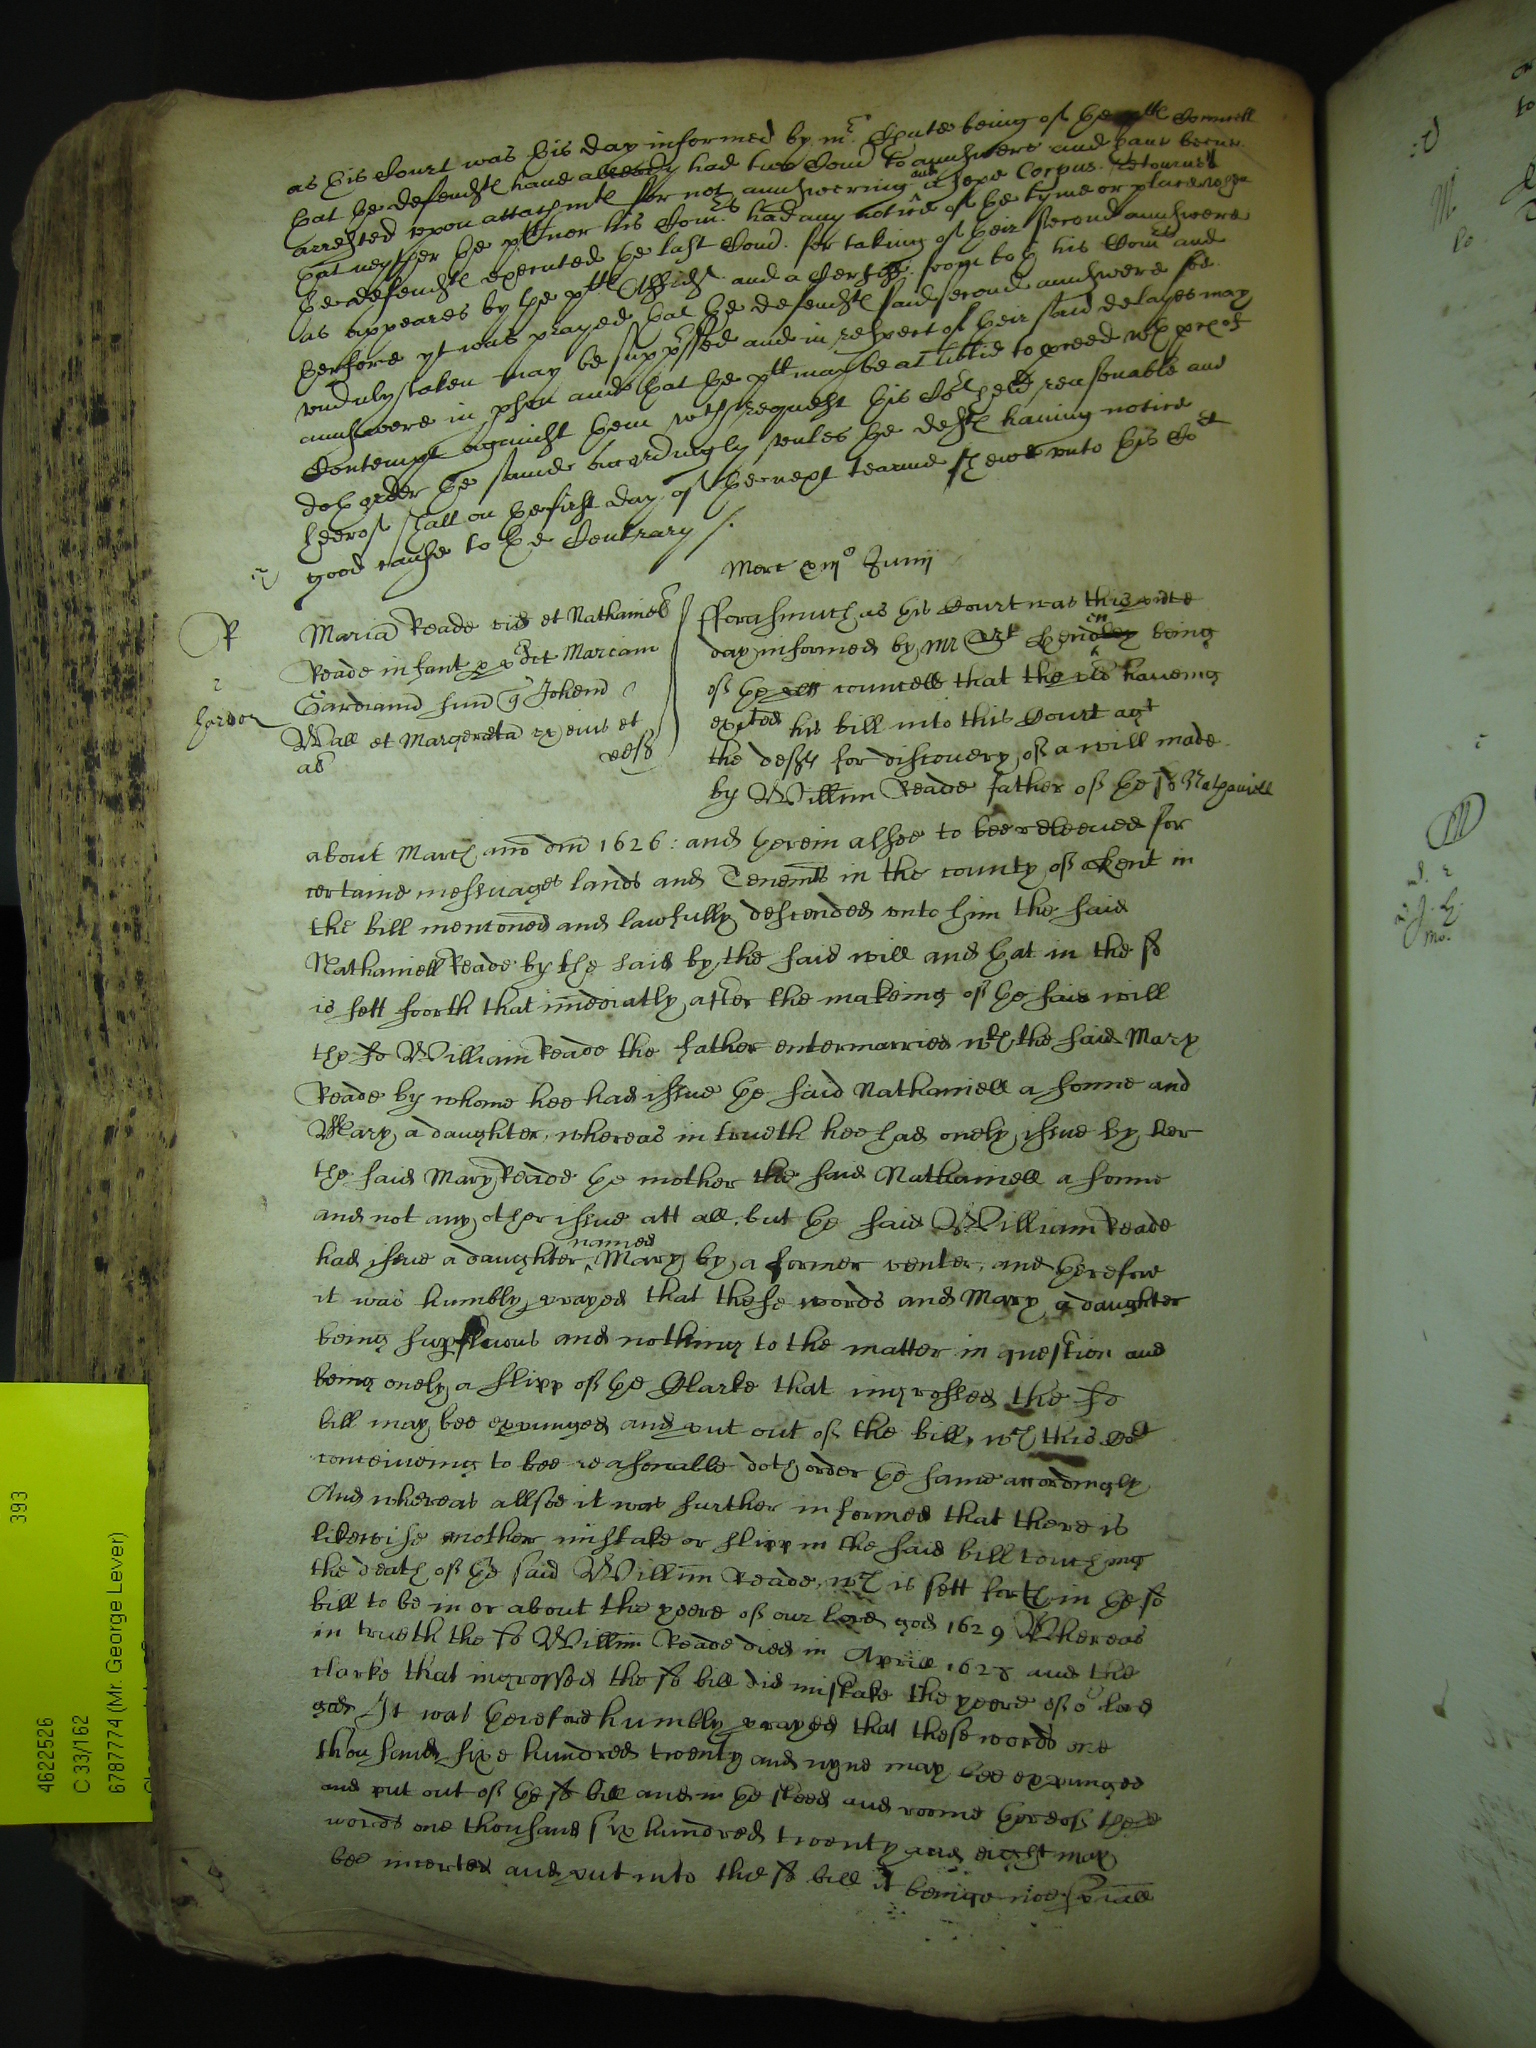 as this Court was this day informed by mr Chute being of the plts Councell
that the defendts have already had two Comd to aunswere and have beene
arrested upon attachmte for not aunswering and a Cepi Corpus retourned
that neyther the plt nor his Comrs had any notice of the tyme or place when
the defendts executed the last Comd. for taking of their second aunswere
as appeares by the plts Affidt. and a Certif. from to of his Comrs and
therfore yt was prayed that the defendts said second aunswere soe
unduly taken may be suppssed and in respect of their said delayes may
aunswere in pson and that the plt may be at libtie to pceed wth pces of
Contempt against them wch request this Ct held reasonable and
doth order the same accordingly unles the defts having notice
heerof shall on the first day of the next tearme shew unto this Cort
good cause to the Contrary /.
Merc xiijo Junij
R
Maria Reade vid et Nathaniel
Reade infant p pdict Mariam
Gardianū suū qr Johem
Wall et Margaretā ux eius et
al defts
fforasmuch as this Court was this psnte
day informed by Mr Srt Hendley being
of the plts councell that the plt haveing
exhted his bill into this Court agt
the defts for discovery of a will made
by Willm Reade father of the sd Nathaniell
about March ano dni 1626: and therein alsoe to bee releeved for
certaine messuages lands and Tenemts in the county of Kent in
the bill mencōned and lawfully descended unto him the said
Nathaniell Reade by the said by the said will and that in the sd
is sett foorth that imediatly after the makeing of the said will
the sd William Reade the father entermarried wth the said Mary
Reade by whome hee had issue the said Nathaniell a sonne and
Mary a daughter, whereas in trueth hee had onely issue by her
the said Mary Reade the mother the said Nathaniell a sonne
and not any other issue att all, but the said William Reade
had issue a daughter named Mary by a former venter, and therefore
it was humbly prayed that these words and Mary a daughter
being supfluous and nothing to the matter in question and
being onely a slipp of the Clarke that ingrossed the sd
bill may bee expunged and put out of the bill, wch this Cort
conceiveing to bee reasonable doth order the same accordingly
And whereas allsoe it was further informed that there is
likewise another mistake or slipp in the said bill touching
the death of the said Willm Reade, wch is sett forth in the sd
bill to be in or about the yeere of our Lord god 1629 Whereas
in trueth the sd Willm Reade died in Aprill 1628 and the
clarke that ingrossed the sd bill did mistake the yeere of or lord
god It was therefore humbly prayed that these words one
thousand sixe hundred twenty and nyne may bee expunged
and put out of the sd bill and in the steed and roome thereof these
words one thousand six hundred twenty and eight may
bee incerted and put into the sd bill it beinge noe spiall
393
4622526
C 33/162
6787774 (Mr. George Lever)